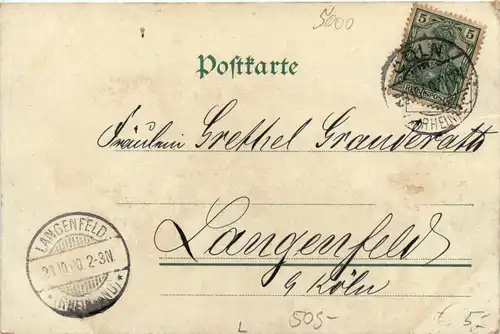 5000
5 5
Postkarte
CÖLN
(RHEIN)
Fräulein Grethel Granderath
LANGENFELD
23.10.00. 2-3N.
*(RHEINLAND)*
Langenfeld
b/ Köln
L 505-
€ 5,-